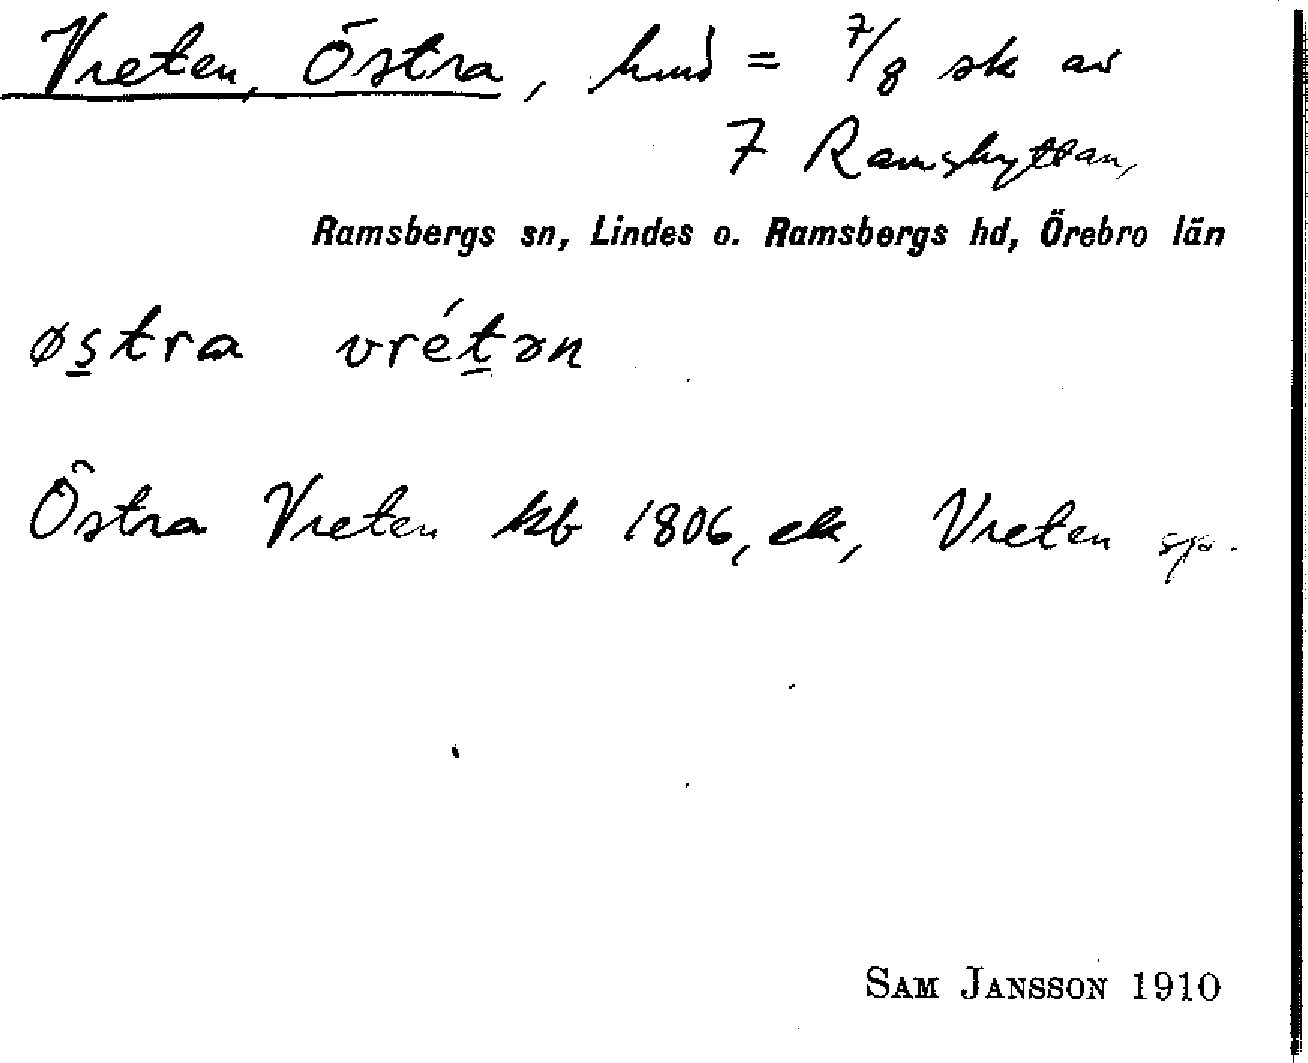 Vreten, Östra, hmd = 7/8 sk av
7 Ramshyttan,
Ramsbergs sn, Lindes o. Ramsbergs hd, Örebro län
øs̲tra vrét̲ən
Östra Vreten kb 1806, ek, Vreten sp.
SAM JANSSON 1910